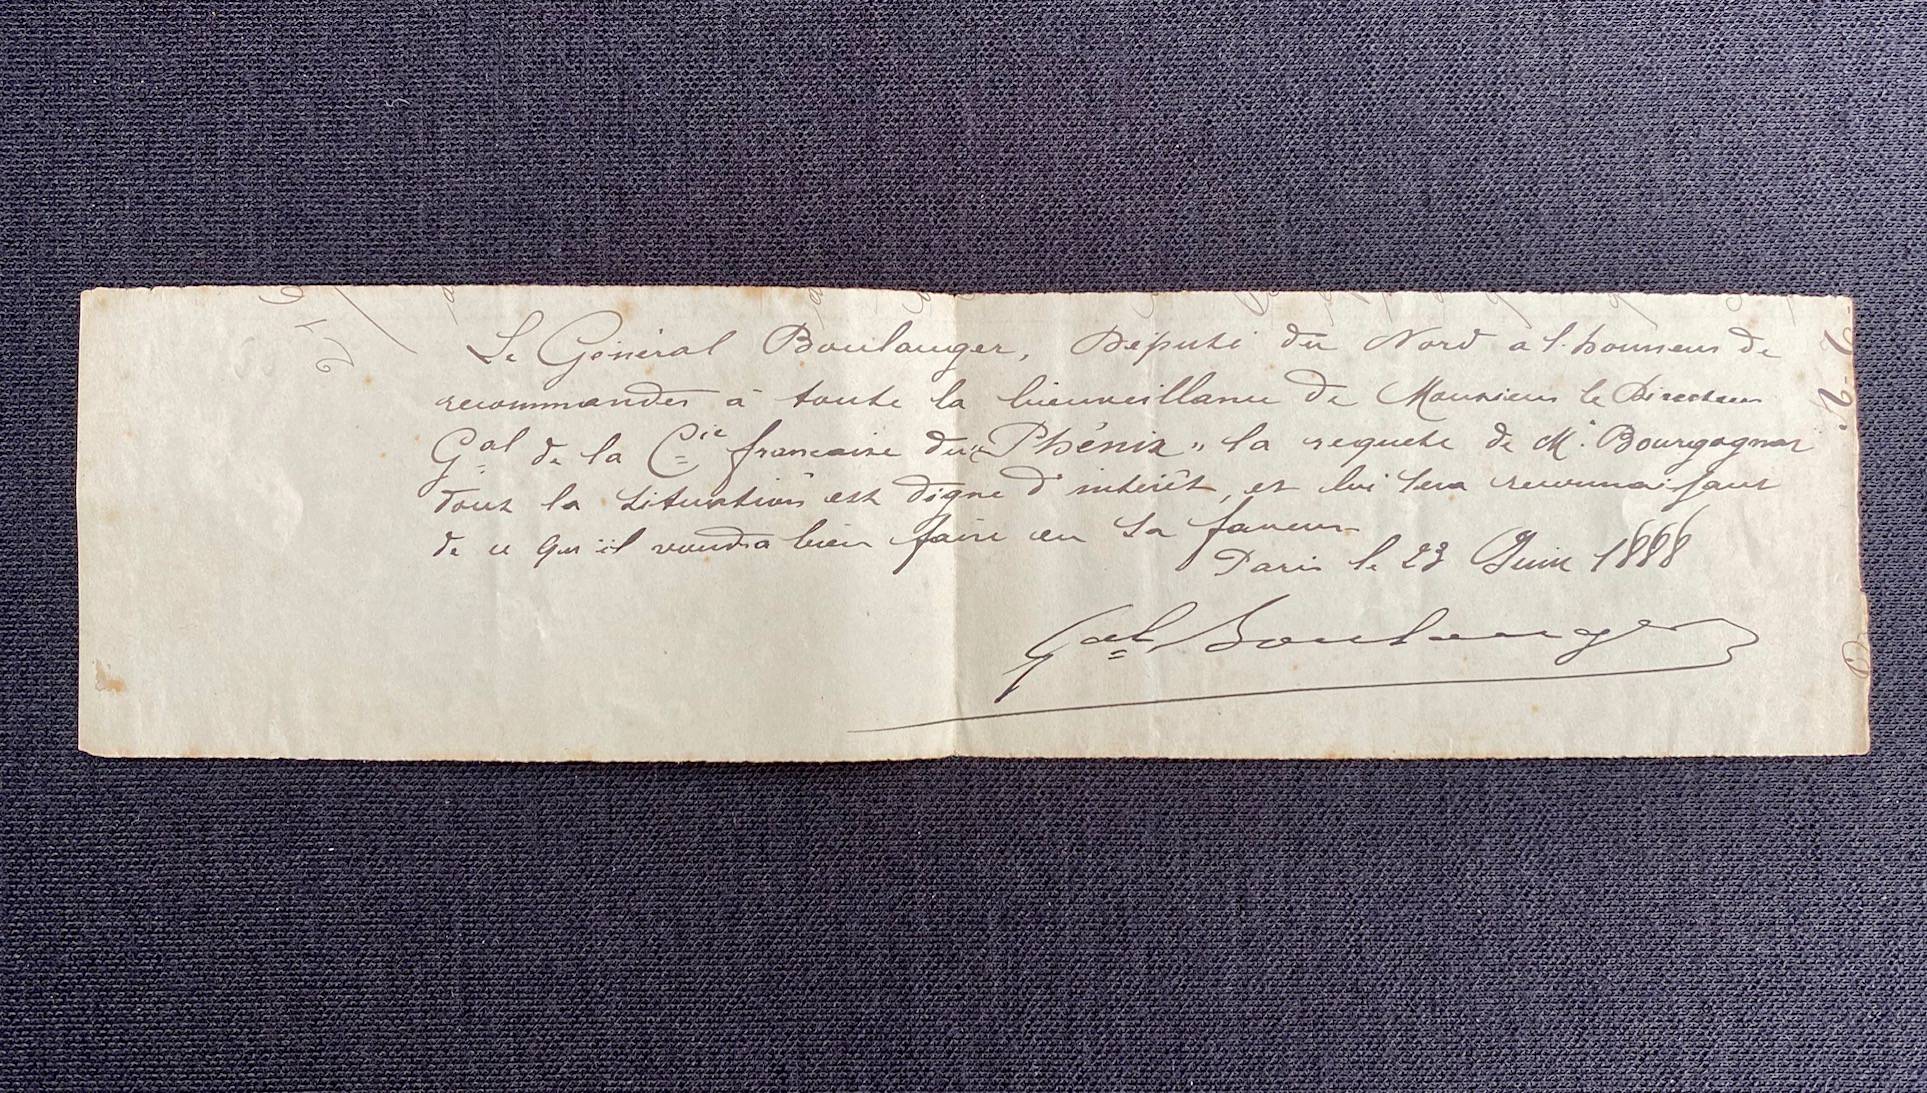 Le Général Boulanger, Député du Nord a l'honneur de
recommander à toute la bienveillance de Monsieur le Directeur
Gal de la Cie française du "Phénix" la requete de Mr. Bourgogner
dont la situation est digne d'intérêt, et lui sera reconnaissant
de ce qu'il voudra bien faire en sa faveur
Paris le 23 Juin 1888
Gal Boulanger